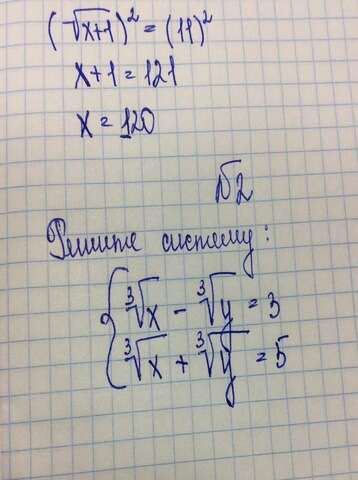 (√x+1)² = (11)²
x+1 = 121
x = 120
№2
Решите систему:
{ ∛x − ∛y = 3
∛x + ∛y = 5